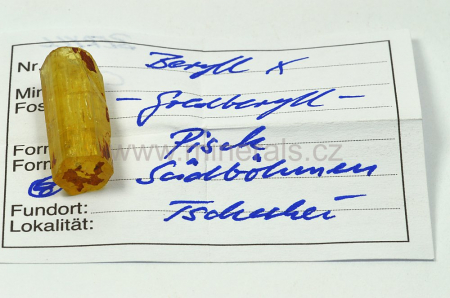 Nr. Beryll x
Min
Fos - Goldberyll -
Form Pisek
Form Südböhmen
www.minerals.cz
Fundort: Tschechei
Lokalität: